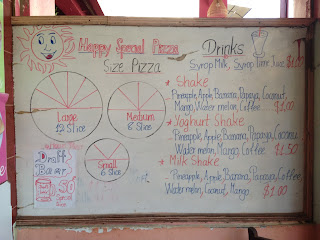 Happy Special Pizza
Size Pizza
Large
12 Slice
Medium
8 Slice
Small
6 Slice
Draft
Beer
50
Drinks
Syrop Milk, Syrop Lim Juice $1.00
* Shake
Pineapple, Apple, Banana, Papaya, Coconut,
Mango, Water melon, Coffee. $1.00
* Yoghurt Shake
Pineapple, Apple, Banana, Papaya, Coconut
Water melon, Mango Coffee $1.50
* Milk Shake
Pineapple, Apple, Banana, Papaya, Coffee,
Water melon, Coconut, Mango $1.00